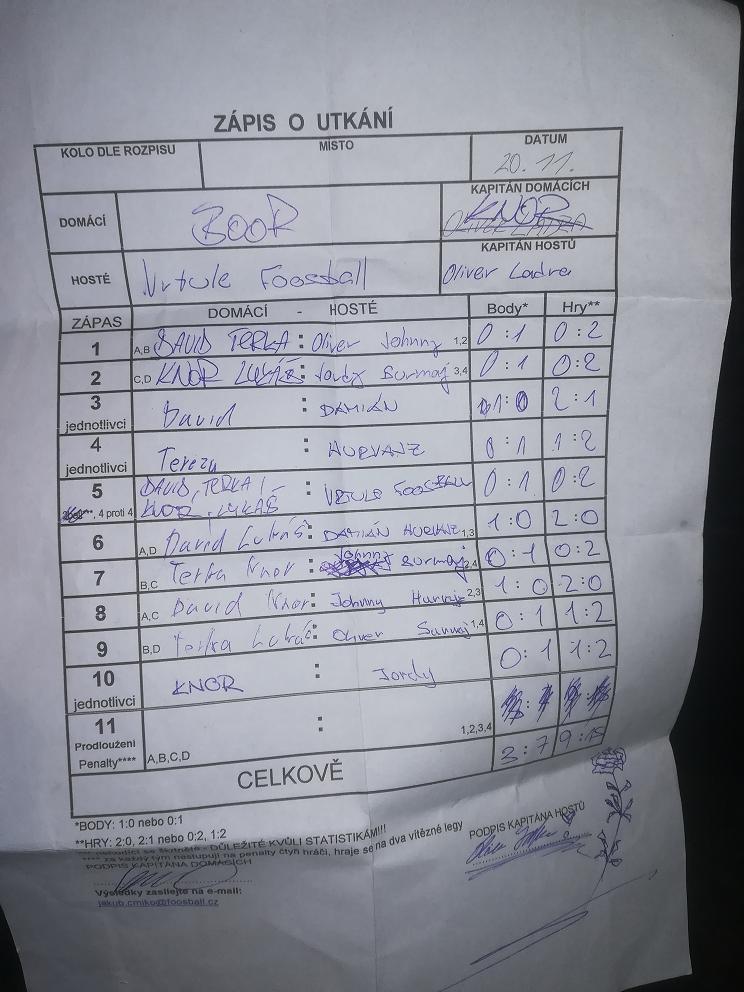 ZÁPIS O UTKÁNÍ
KOLO DLE ROZPISU MÍSTO DATUM
20.11.
DOMÁCÍ BOOR KAPITÁN DOMÁCÍCH
KNOR
HOSTÉ Vrtule Foosball KAPITÁN HOSTŮ
Oliver Ladra
ZÁPAS DOMÁCÍ - HOSTÉ Body* Hry**
1 A,B DAVID TERKA : Oliver Johnny 1,2 0:1 0:2
2 C,D KNOR LUKÁŠ : Jordy Surmaj 3,4 0:1 0:2
3 jednotlivci David : DAMIÁN 1:0 2:1
4 jednotlivci Tereza : HURVAJZ 0:1 1:2
5 DAVID, TERKA, : VRTULE FOOSBALL 0:1 0:2
, 4 proti 4 KNOR, LUKÁŠ
6 A,D David Lukáš : DAMIÁN HURVAJZ 1,3 1:0 2:0
7 B,C Terka Knor : Johnny Surmaj 2,4 0:1 0:2
8 A,C David Knor : Johnny 2,3 1:0 2:0
9 B,D Terka Lukáš : Oliver 1,4 0:1 1:2
10 jednotlivci KNOR : Jordy 0:1 1:2
11 Prodloužení :
Penalty**** A,B,C,D 1,2,3,4
CELKOVĚ 3:7 9:15
*BODY: 1:0 nebo 0:1
**HRY: 2:0, 2:1 nebo 0:2, 1:2
- DŮLEŽITÉ KVŮLI STATISTIKÁM!!!
**** za každý tým nastupují na penalty čtyři hráči, hraje se na dva vítězné legy
PODPIS KAPITÁNA DOMÁCÍCH PODPIS KAPITÁNA HOSTŮ
Výsledky zasílejte na e-mail:
jakub.cmiko@foosball.cz